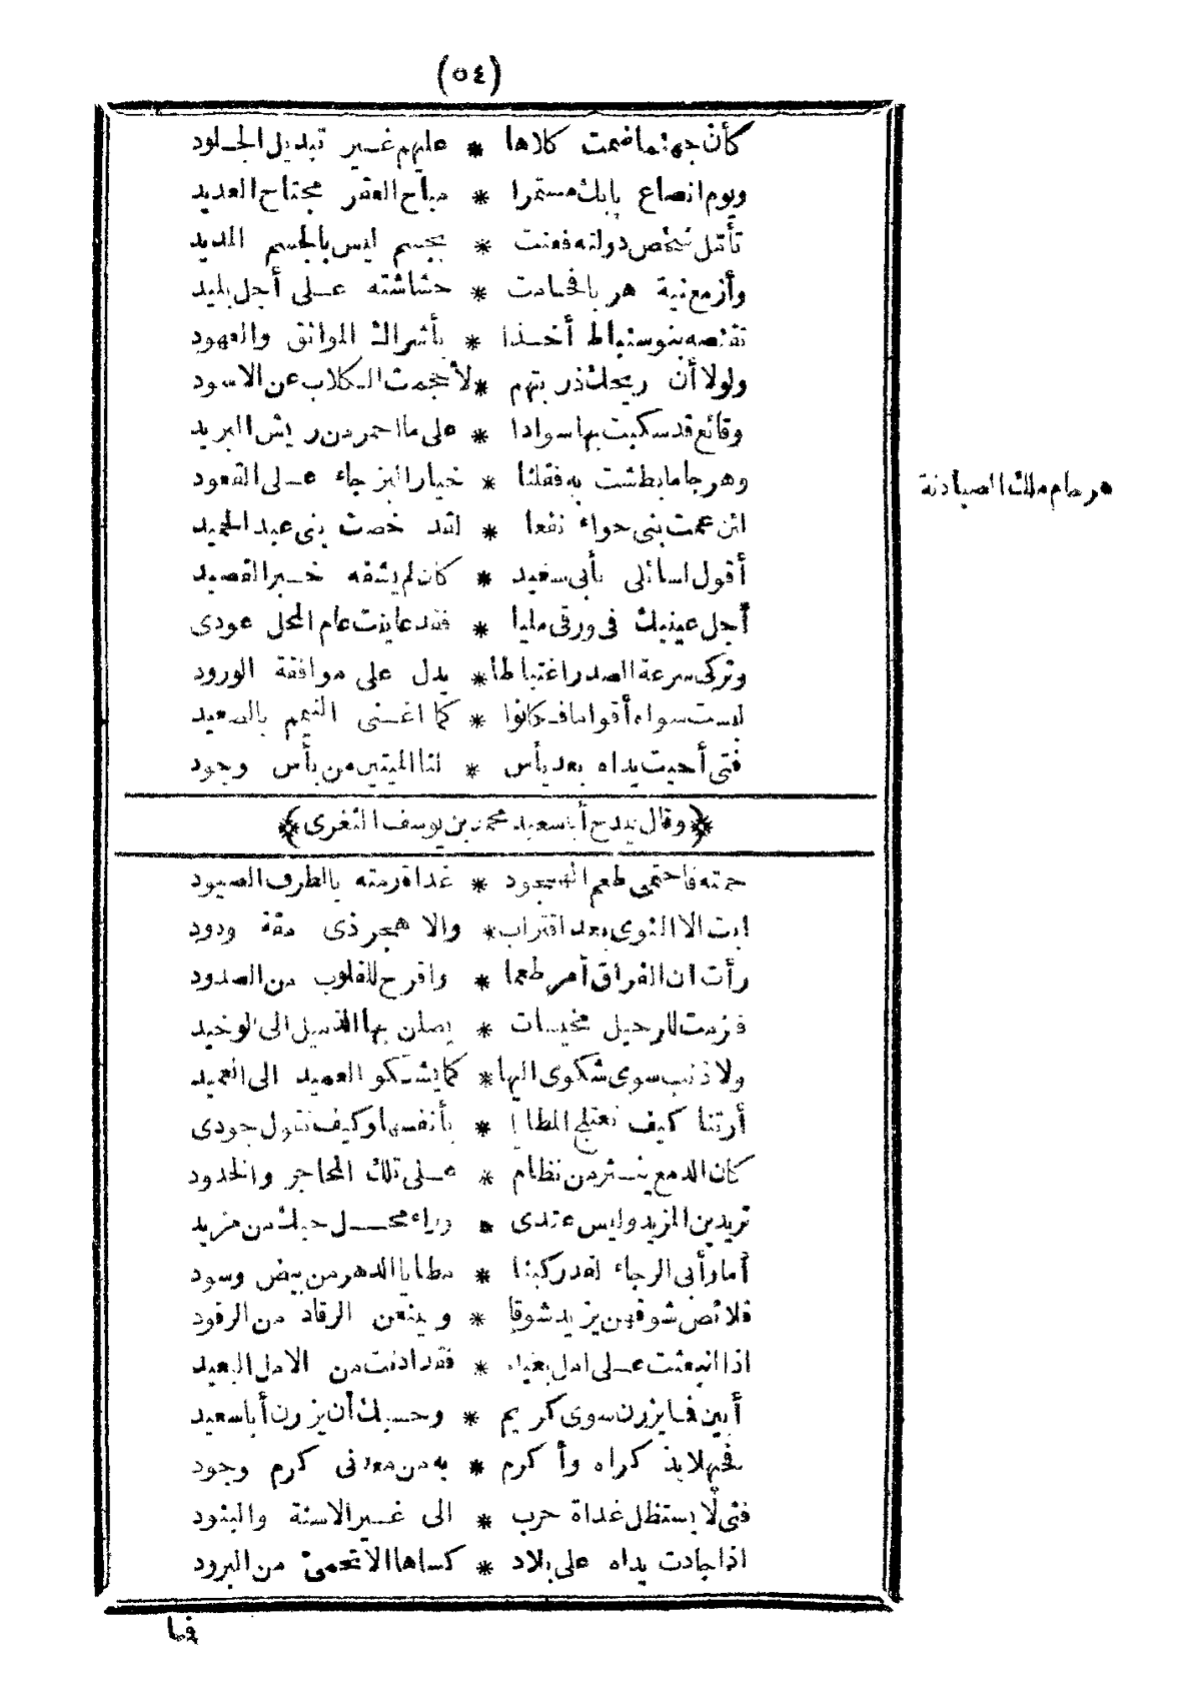 (٥٤)
كأن جهنما ضمت كلاها * عليهم غير تبديل الجلود
ويوم انصاع بابك مستمرا * مباح العقر مجتاح العديد
تأمل شخص دولته فعنت * بجسم ليس بالجسم المديد
وأزمع نية هربا فحامت * حشاشته على أجل بليد
تقنصه بنو سنباط أخذا * بأشراك المواثق والعهود
ولولا أن ريحك ذربتهم * لأحجمت الكلاب عن الاسود
وقائع قد سكبت بها سوادا * على ما احمر من ريش البريد
وهرجاما بطشت به فقلنا * خيار البز جاء على القعود
هرجام ملك الصبادنة
لئن عمت بنى حواء نفعا * لقد خصت بنى عبد الحميد
أقول لسائلى بأبى سعيد * كان لم يشفه خبر القصيد
أجل عينيك فى ورقى مليا * فقد عاينت عام المحل عودى
وتركى سرعة الصدر اغتباطا * يدل على موافقة الورود
لبست سواه أقواما فكانوا * كما اغنى التيمم بالصعيد
فتى أحيت يداه بعد يأس * لنا الميتين من بأس وجود
﴿وقال يمدح أبا سعيد محمد بن يوسف الثغرى﴾
حمته فاحتمى طعم الهجود * غداة رمته بالطرف الصيود
ابت الا النوى بعد اقتراب * والا هجر ذى مقة ودود
رأت ان الفراق أمر طعما * واقرح للقلوب من الصدود
فزمت للرحيل مخيسات * يصلن بها الذميل الى الوخيد
ولا ذنب سوى شكوى اليها * كما يشكو العميد الى العميد
أرتنا كيف تعتلج المطايا * بأنفسها وكيف نقول جودى
كان الدمع ينثر من نظام * على تلك المحاجر والخدود
تريدين المزيد وليس عندى * وراء محل حبك من مزيد
أما وأبى الرجاء لقد ركبنا * مطايا الدهر من بيض وسود
قلائص شوقهن يزيد شوقا * ويمنعن الرقاد من الرقود
اذا انبعثت على امل بعيد * فقد ادنت من الامل البعيد
أبين فما يزرن سوى كريم * وحسبك أن يزرن أبا سعيد
فحيهلا بذكراه وأكرم * به من معدنى كرم وجود
فتى لا يستظل غداة حرب * الى غير الاسنة والبنود
اذا جادت يداه على بلاد * كساها الاتحمى من البرود
فما